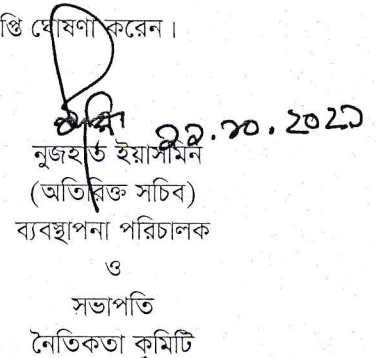 প্তি ঘোষণা করেন।
২১.১০.২০২১
নুজহাত ইয়াসমিন
(অতিরিক্ত সচিব)
ব্যবস্থাপনা পরিচালক
ও
সভাপতি
নৈতিকতা কমিটি